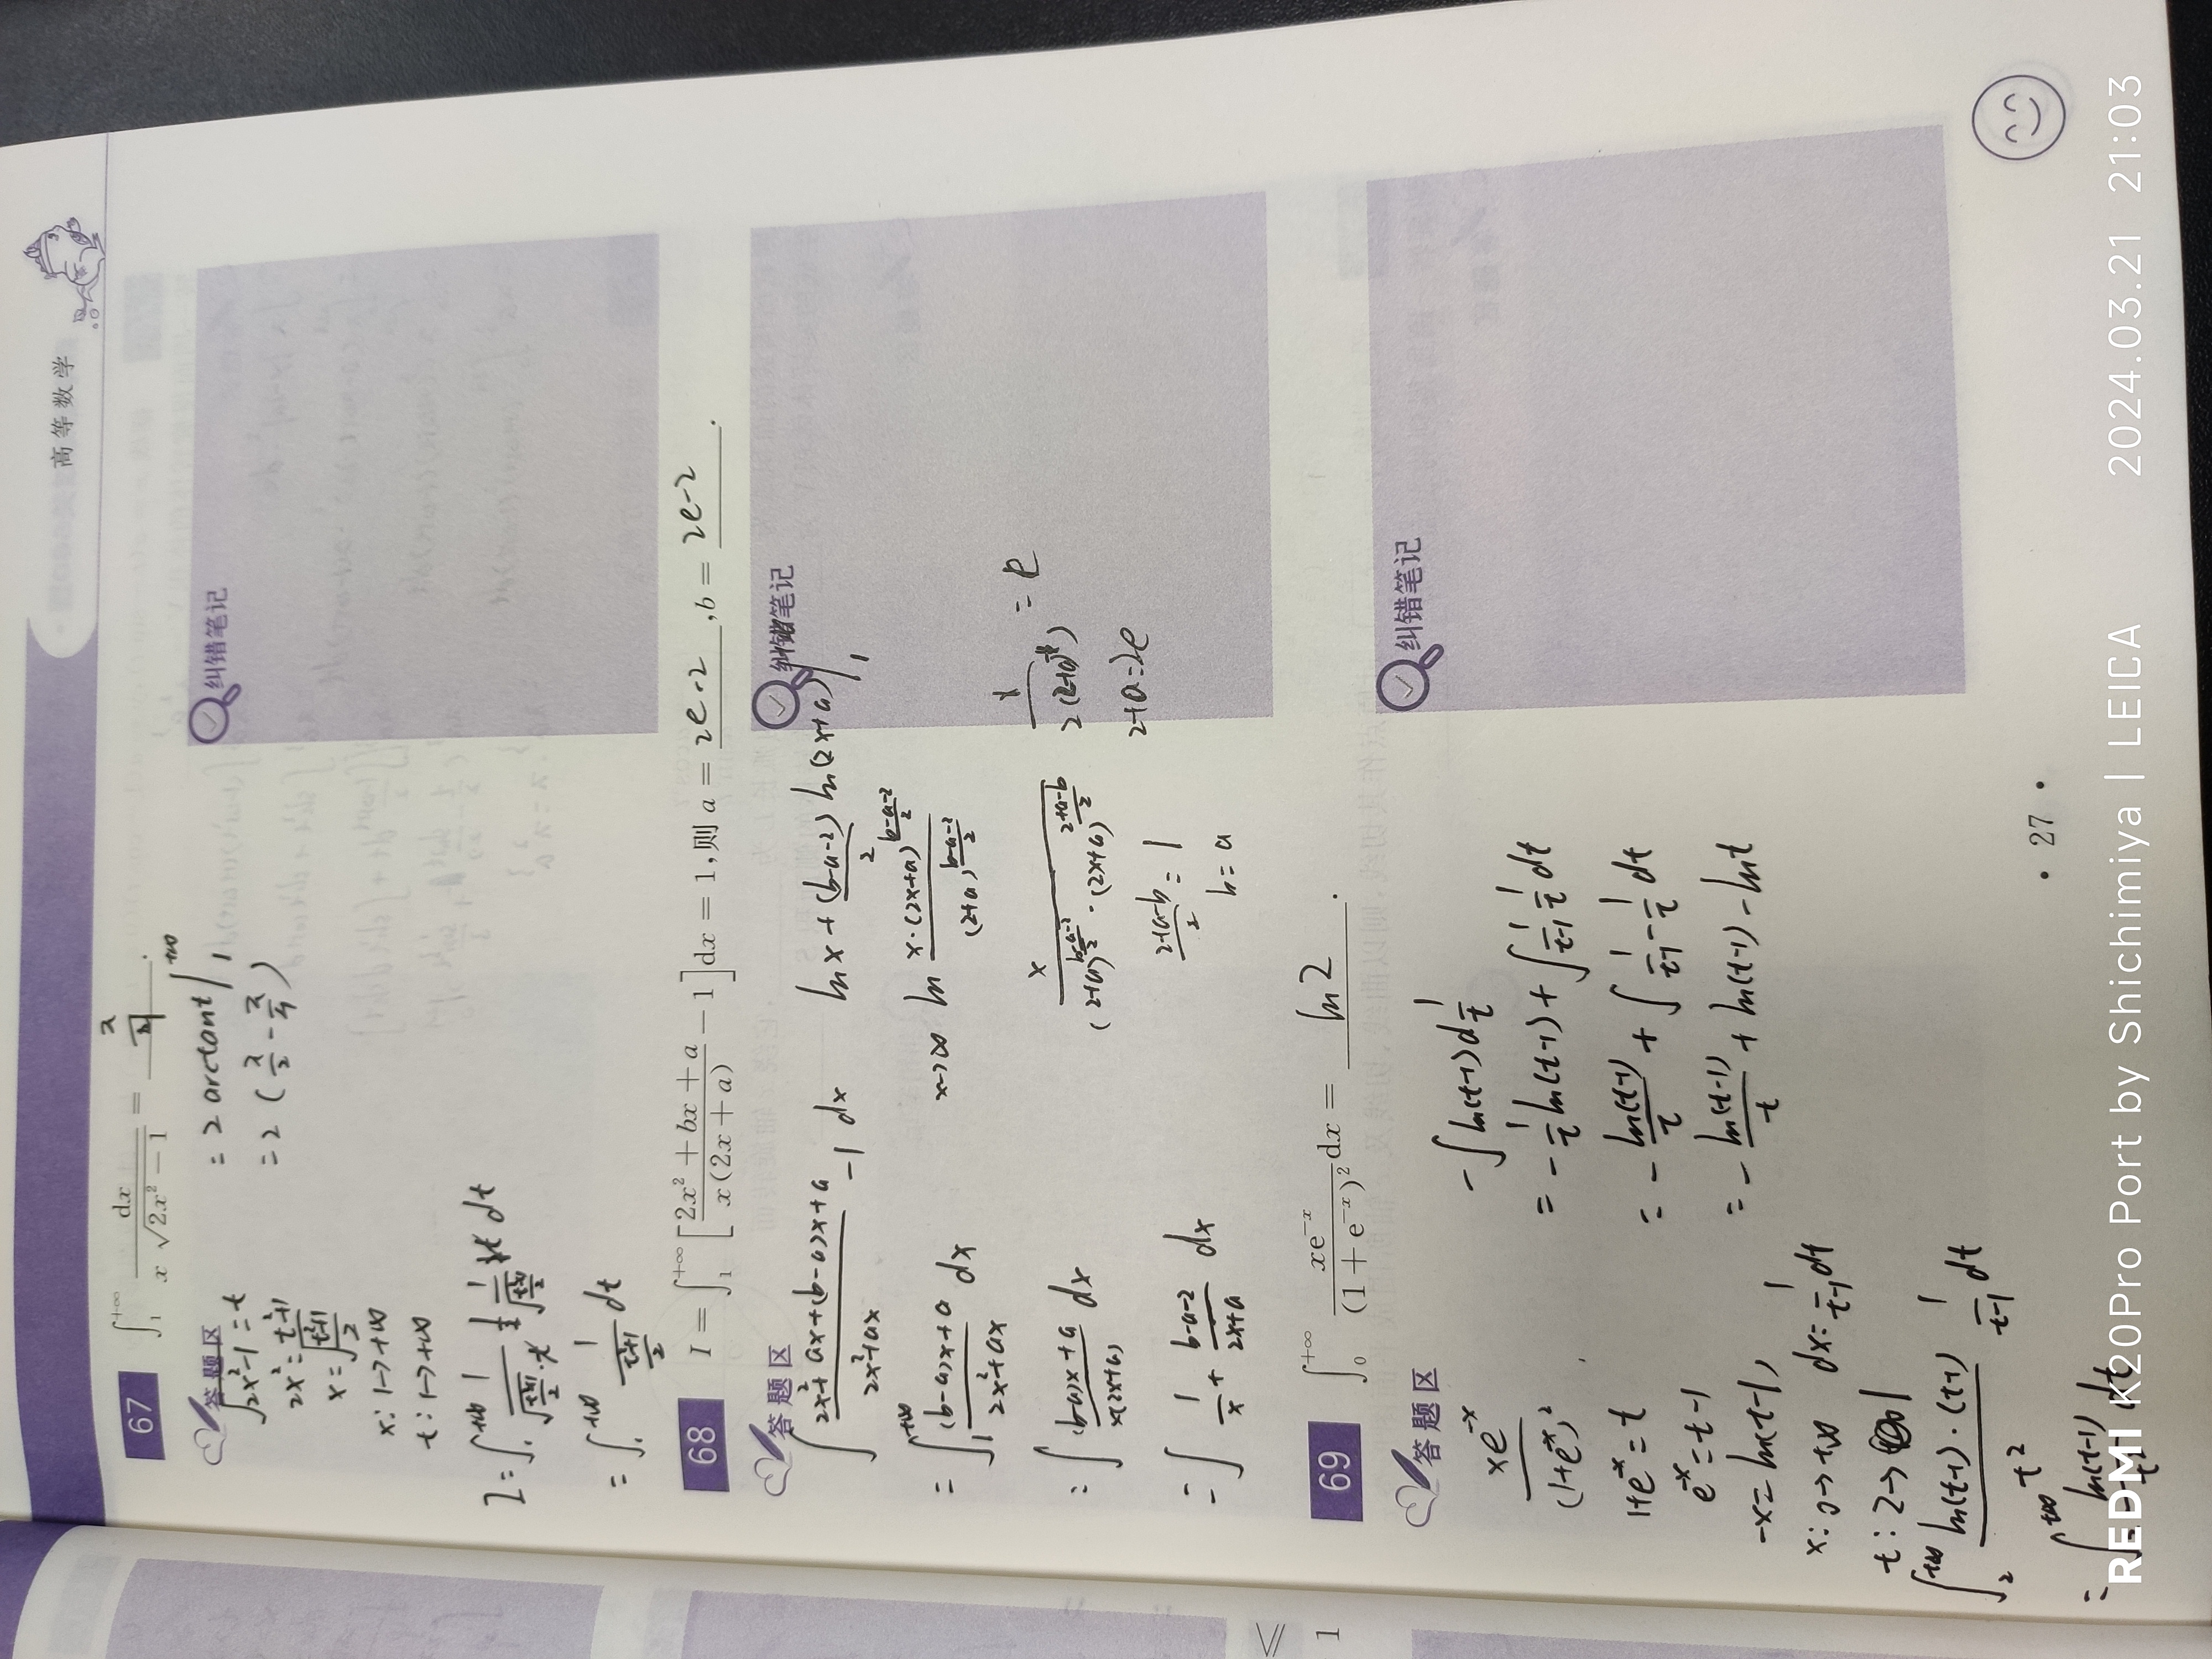 高等数学
67 ∫₁^{+∞} dx / (x √(2x² − 1)) = π/4 .
答题区
纠错笔记
√(2x²-1) = t
2x² = t²+1
x = √((t²+1)/2)
x: 1→+∞
t: 1→+∞
= 2 arctant |₁^{+∞}
= 2 (π/2 - π/4)
= ∫₁^{+∞} 1/((t²+1)/2) dt
68 I = ∫₁^{+∞} [(2x² + bx + a)/(x(2x + a)) − 1]dx = 1,则 a = 2e-2 ,b = 2e-2 .
答题区
纠错笔记
∫ (2x²+ax+(b-a)x+a)/(2x²+ax) -1 dx
= ∫₁^{+∞} ((b-a)x+a)/(2x²+ax) dx
= ∫ ((b-a)x+a)/(x(2x+a)) dx
= ∫ 1/x + (b-a-2)/(2x+a) dx
lnx + (b-a-2)/2 ln(2x+a) |₁
x→∞ ln (x·(2x+a)^{(b-a-2)/2})/((2+a)^{(b-a-2)/2})
x/((2+a)^{(b-a-2)/2} · (2x+a)^{(2+a-b)/2})
(2+a-b)/2 = 1
b = a
2+a=2e
69 ∫₀^{+∞} xe^{−x}/(1 + e^{−x})² dx = ln2 .
答题区
纠错笔记
xe^{-x}/(1+e^{-x})²
1+e^{-x} = t
e^{-x} = t-1
-x = ln(t-1)
x: 0→+∞ dx = 1/(t-1) dt
t: 2→ 1
∫₂^{+∞} ln(t-1)·(t-1)/t² 1/(t-1) dt
= ∫^{+∞} ln(t-1)/t² dt
-∫ ln(t-1) d 1/t
= -1/t ln(t-1) + ∫ 1/(t-1) 1/t dt
= - ln(t-1)/t + ∫ 1/(t-1) - 1/t dt
= - ln(t-1)/t + ln(t-1) - lnt
≤
1
· 27 ·
REDMI K20Pro Port by Shichimiya | LEICA
2024.03.21 21:03